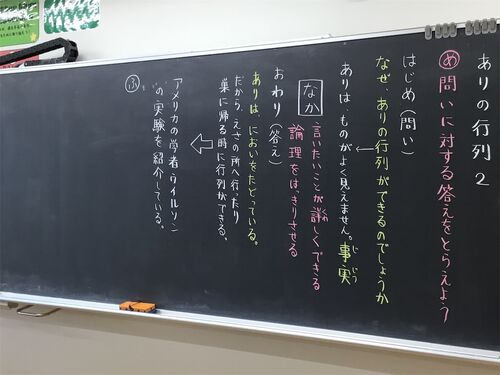 ありの行列 2
め 問いに対する答えをとらえよう
はじめ(問い)
なぜ、ありの行列ができるのでしょうか
ありは、ものがよく見えません。事実
じじつ
なか
言いたいことが詳しくできる
くわ
論理をはっきりさせる
おわり(答え)
ありは、においをたどっている。
だから、えさの所へ行ったり
巣に帰る時に行列ができる。
アメリカの学者、ウイルソン
の実験を紹介している。
ふ